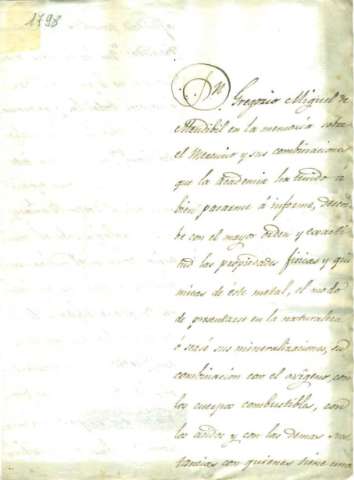 1798
Dn Gregorio Miguel de
Mendibil en la memoria sobre
el Mercurio y sus combinaciones
que la Academia ha tenido a
bien pasarme á informe, descri
be con el mayor orden y exacti
tud las propiedades fisicas y qui
micas de este metal, el modo
de presentarse en la naturaleza
ó sease sus mineralizaciones, su
combinacion con el oxigeno, con
los cuerpos combustibles, con
los acidos y con las demas sus
tancias con quienes tiene una